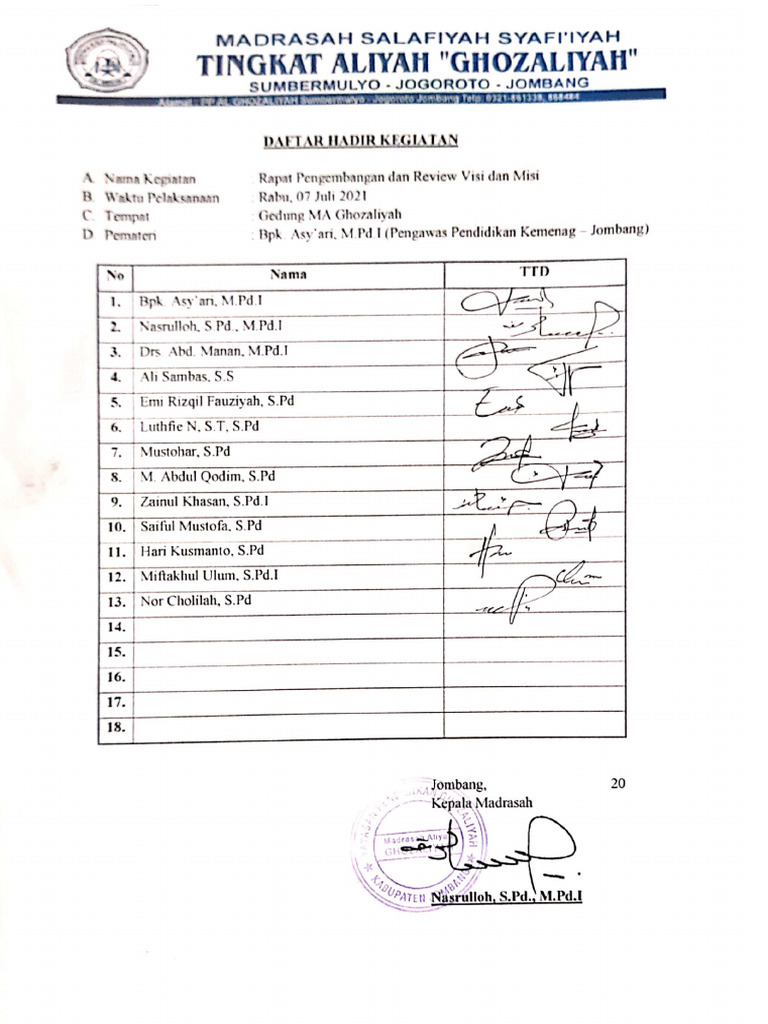 MADRASAH SALAFIYAH SYAFI'IYAH
TINGKAT ALIYAH "GHOZALIYAH"
SUMBERMULYO - JOGOROTO - JOMBANG
Alamat : PP.AL GHOZALIYAH Sumbermulyo - Jogoroto Jombang Telp.
DAFTAR HADIR KEGIATAN
A. Nama Kegiatan : Rapat Pengembangan dan Review Visi dan Misi
B. Waktu Pelaksanaan : Rabu, 07 Juli 2021
C. Tempat : Gedung MA Ghozaliyah
D. Pemateri : Bpk. Asy'ari, M.Pd.I (Pengawas Pendidikan Kemenag – Jombang)
No Nama TTD
1. Bpk. Asy'ari, M.Pd.I
2. Nasrulloh, S.Pd., M.Pd.I
3. Drs. Abd. Manan, M.Pd.I
4. Ali Sambas, S.S
5. Emi Rizqil Fauziyah, S.Pd
6. Luthfie N, S.T, S.Pd
7. Mustohar, S.Pd
8. M. Abdul Qodim, S.Pd
9. Zainul Khasan, S.Pd.I
10. Saiful Mustofa, S.Pd
11. Hari Kusmanto, S.Pd
12. Miftakhul Ulum, S.Pd.I
13. Nor Cholilah, S.Pd
14.
15.
16.
17.
18.
Jombang, 20
Kepala Madrasah
Madrasah Aliyah
KABUPATEN JOMBANG
Nasrulloh, S.Pd., M.Pd.I